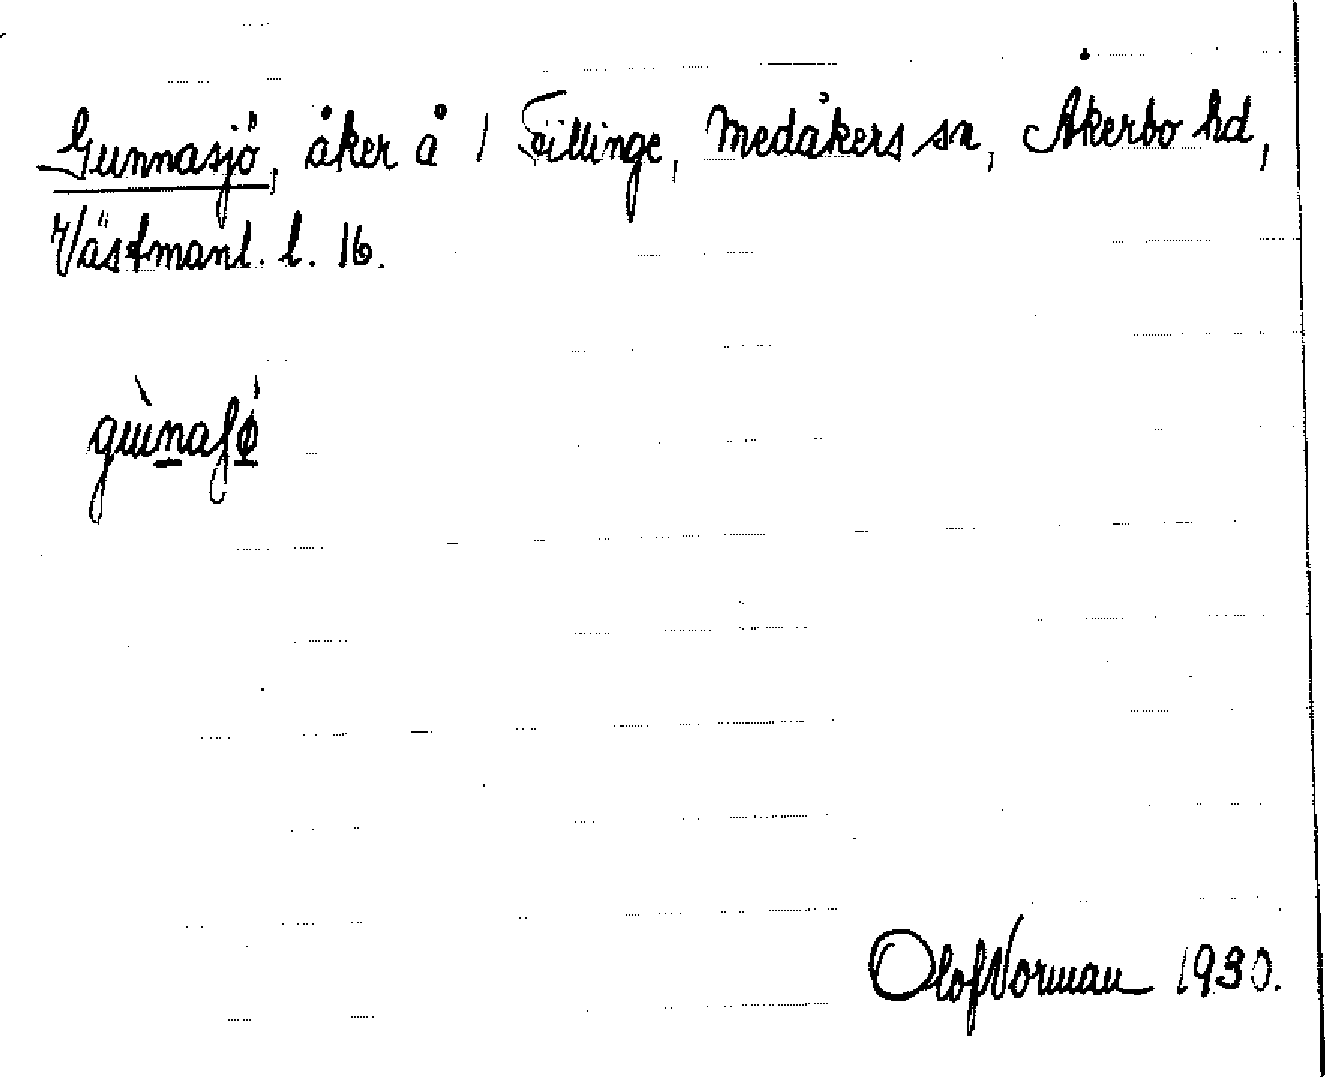 Gunnasjö, åker å 1 Fillinge, Medåkers sn, Åkerbo hd,
Västmanl. l. 16.
Olof Norman 1930.